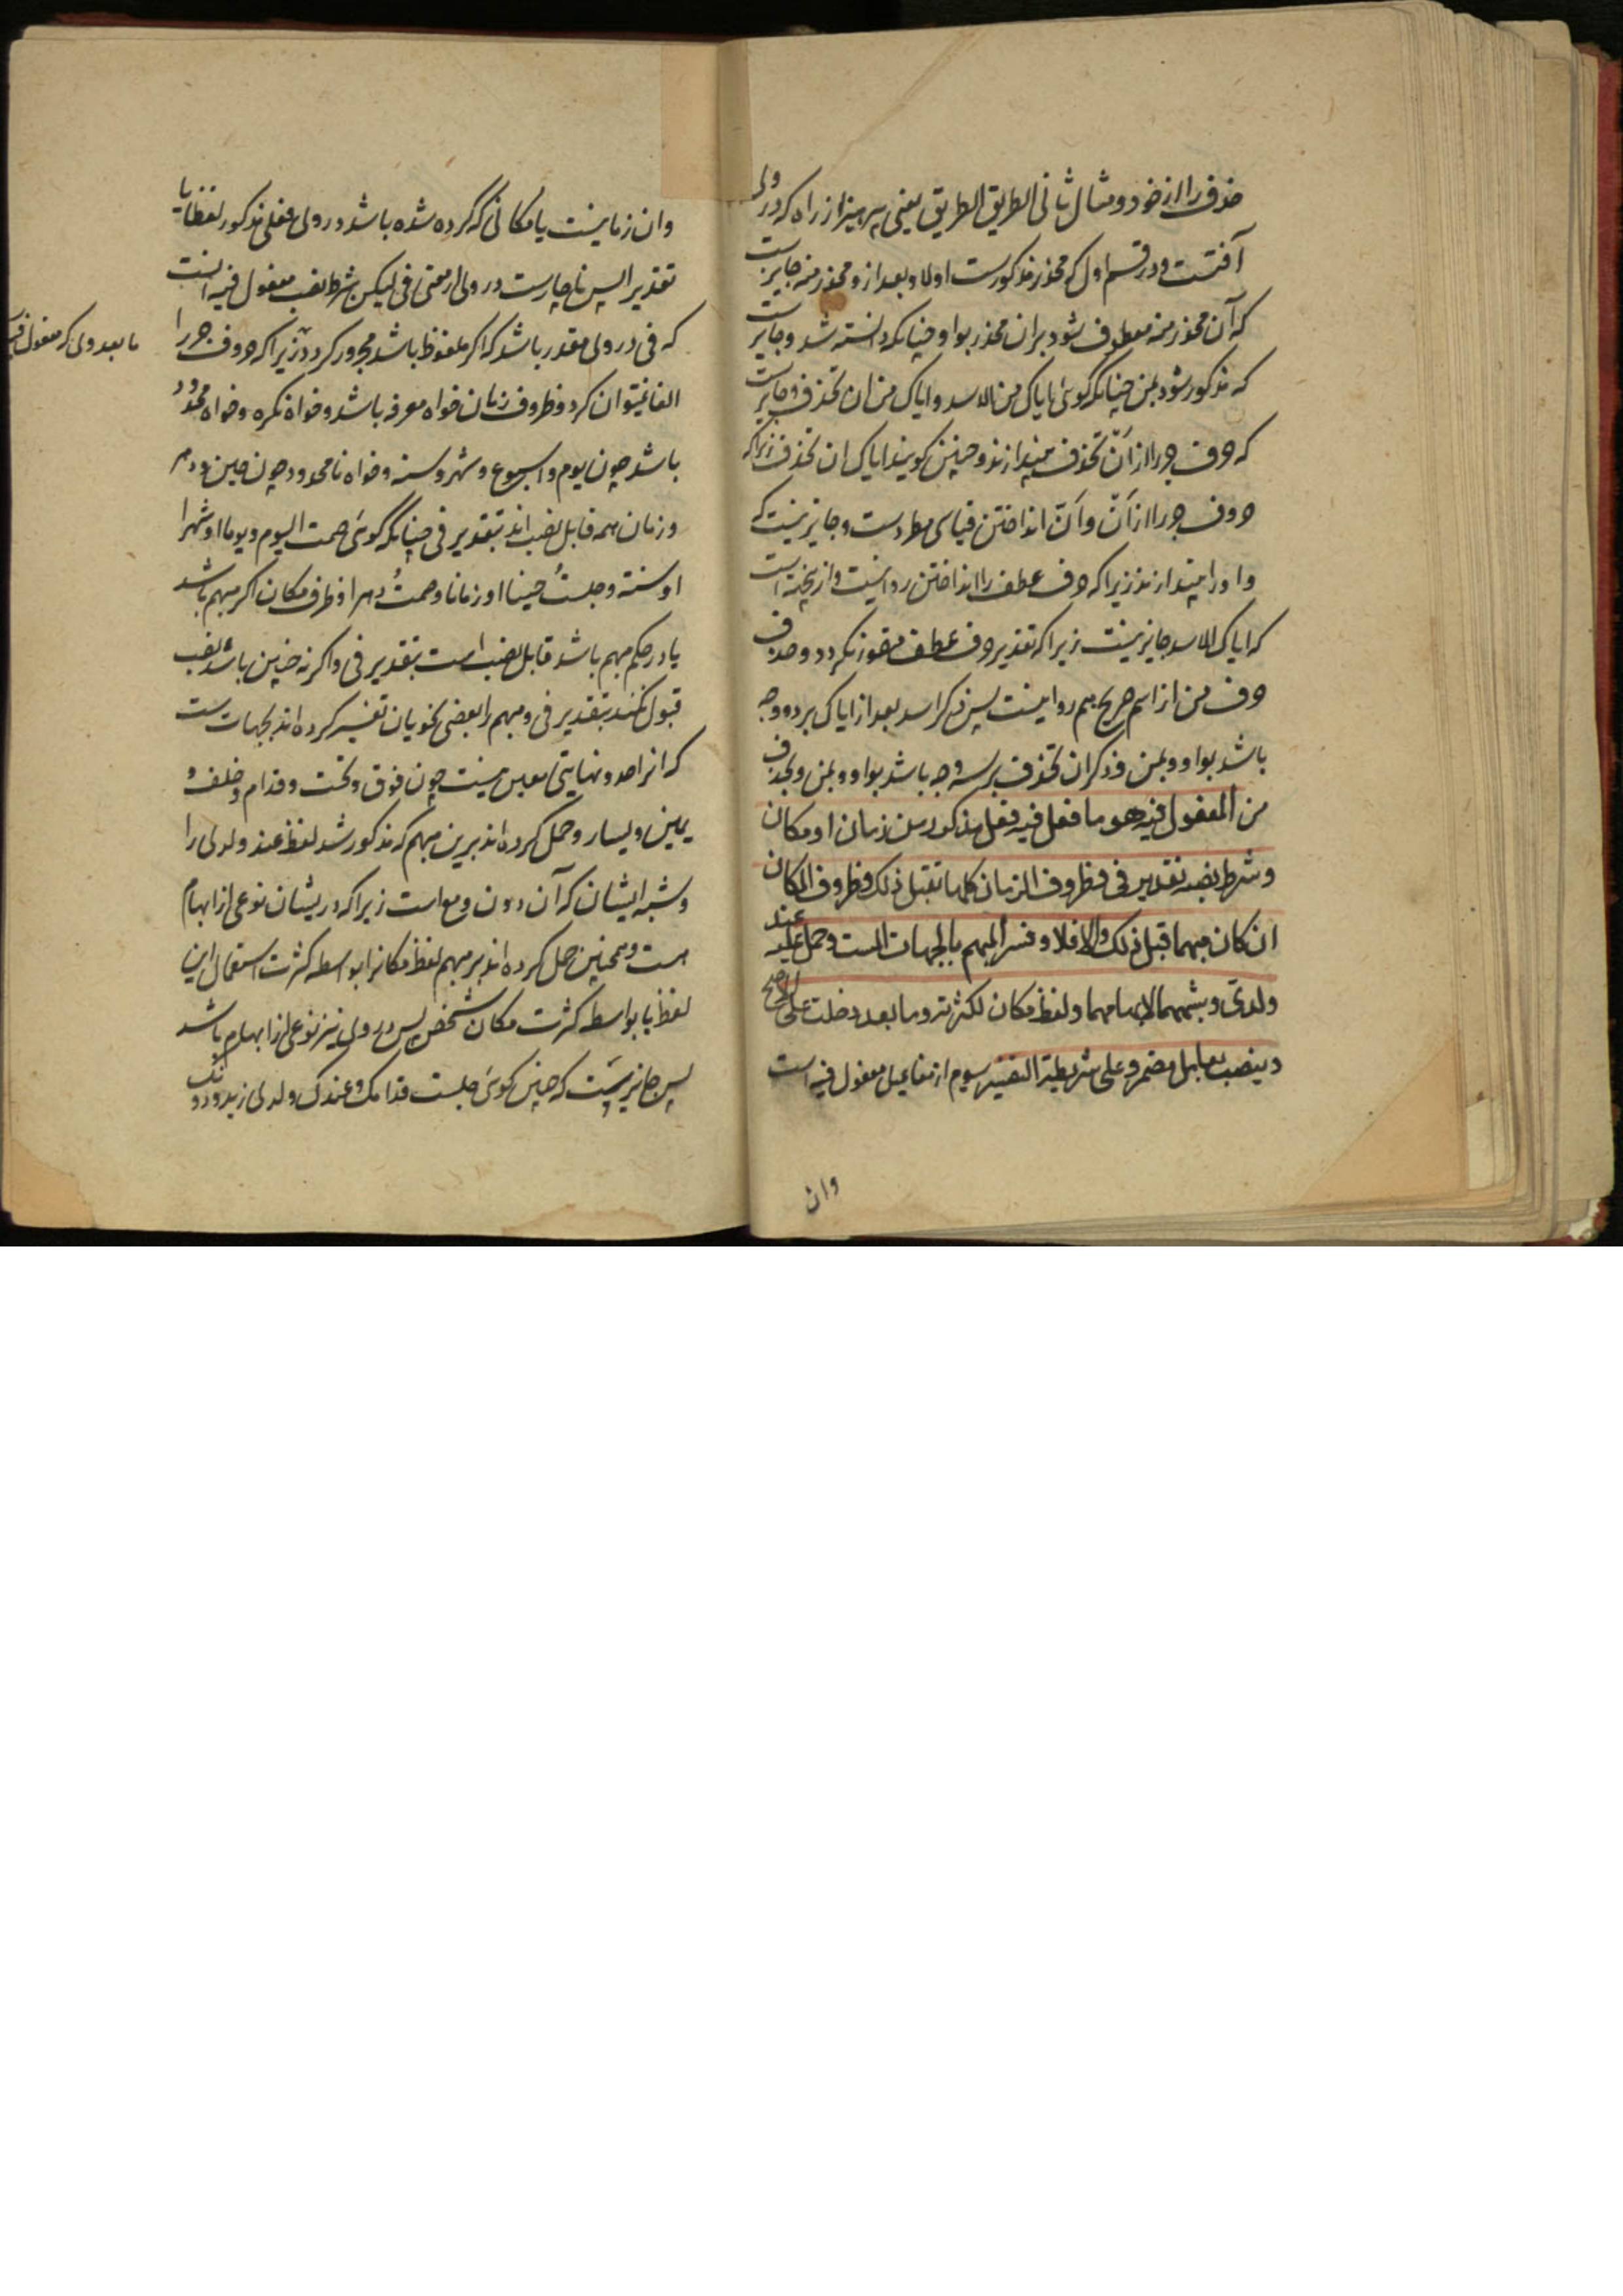 حذف را از خود و مثال ثانی الطریق الطریق یعنی بپرهیز از راه که در وی
آفتست و در قسم اول که محذر مذکورست اولا و بعد ازو محذر منه جایزست
که آن محذر منه معطوف شود بران محذر بواو چنانکه دانسته شد و جایزست
که مذکور شود بمن چنانکه گوئی ایاک من الاسد و ایاک من ان تحذف و جایزست
که حرف جر را از ان تحذف بیندازند و چنین گویند ایاک ان تحذف زیراکه
حروف جر را از انّ و ان انداختن قیاسی مطردست و جایز نیست که
واو را بیندازند زیراکه حرف عطف را انداختن روا نیست و ازینجهة است
که ایاک الاسد جایز نیست زیراکه تقدیر حرف عطف متصور نگردد و حذف
حرف من از اسم صریح هم روا نیست پس ذکر اسد بعد از ایاک بر دو وجه
باشد بواو و بمن و ذکر ان تحذف بر سه وجه باشد بواو و بمن و بحذف
من المفعول فیه هو ما فعل فیه فعل مذکور من زمان او مکان
و شرط نصبه تقدیر فی و ظروف الزمان کلها تقبل ذلک و ظروف المکان
ان کان مبهما قبل ذلک والا فلا و فسر المبهم بالجهات الست و حمل علیه عند
ولدی و شبههما لابهامهما و لفظ مکان لکثرته و ما بعد دخلت علی الاصح
و ینصب بعامل مضمر و علی شریطة التفسیر سوم از مفاعیل مفعول فیه است
وان
وان زمانیست یا مکانی که کرده شده باشد در وی فعلی مذکور لفظا یا
تقدیرا پس ناچارست در وی از معنی فی لیکن شرط نصب مفعول فیه آنست
که فی در وی مقدر باشد که اگر ملفوظ باشد مجرور گردد زیراکه حروف جر را
الغا نمیتوان کرد و ظروف زمان خواه معرفه باشد و خواه نکره و خواه محدود
باشد چون یوم و اسبوع و شهر و سنه و خواه نامحدود چون حین و دهر
و زمان همه قابل نصب اند بتقدیر فی چنانکه گوئی صمت الیوم و یوما او شهرا
او سنة و جلستُ حینا او زمانا و صمتُ دهرا و ظرف مکان اگر مبهم باشد
یا در حکم مبهم باشد قابل نصب است بتقدیر فی و اگر نه چنین باشد نصب
قبول نکند بتقدیر فی و مبهم را بعضی نحویان تفسیر کرده اند بجهات ست
که انرا حد و نهایتی معین نیست چون فوق و تحت و قدام و خلف و
یمین و یسار و حمل کرده اند برین مبهم که مذکور شد لفظ عند و لدی را
و شبه ایشان که آن دون و مع است زیراکه در یشان نوعی از ابهام
هست و همچنین حمل کرده اند بر مبهم لفظ مکانرا بواسطه کثرت استعمال این
لفظ یا بواسطه کثرت مکان شخص پس در وی نیز نوعی از ابهام باشد
پس جایز نیست که چنین گوئی جلست قدامک و عندک و لدی زید و دونک
ما بعد وی که مفعول فیه